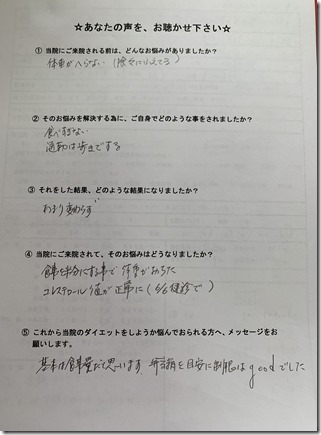 ☆あなたの声を、お聴かせ下さい☆
① 当院にご来院される前は、どんなお悩みがありましたか?
体重がへらない(徐々にふえてる)
② そのお悩みを解決する為に、ご自身でどのような事をされましたか?
食べすぎない
通勤は歩きでする
③ それをした結果、どのような結果になりましたか?
あまり変わらず
④ 当院にご来院されて、そのお悩みはどうなりましたか?
食事を半分にする事で 体重がおちた
コレステロール値が正常に(5/6健診で)
⑤ これから当院のダイエットをしようか悩んでおられる方へ、メッセージをお
願いします。
基本は食事量だと思います、を目安に制限はgoodでした